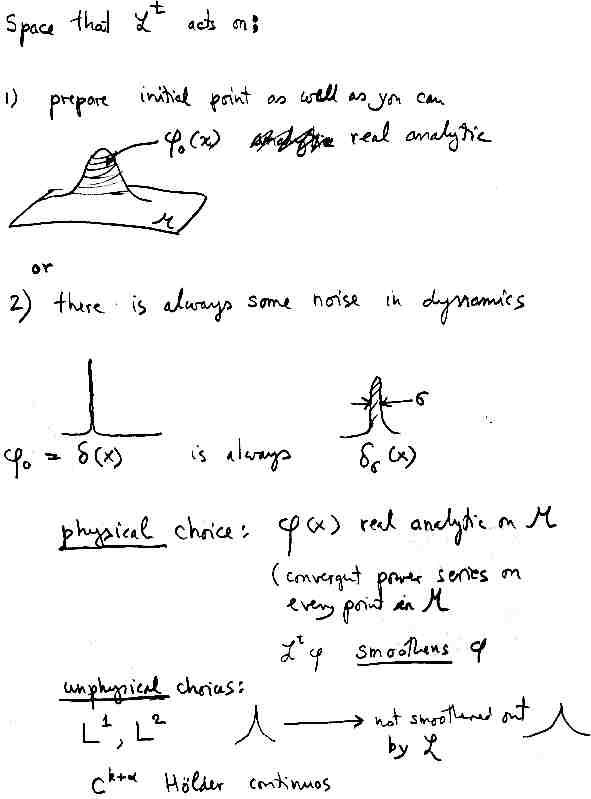 Space that ℒᵗ acts on:
1) prepare initial point as well as you can
φ₀(x) real analytic
M
or
2) there is always some noise in dynamics
σ
φ₀ = δ(x) is always δσ(x)
physical choice: φ(x) real analytic on M
(convergut power series on
every point in M
ℒᵗφ smoothens φ
unphysical choices:
L¹, L² not smoothened out
by ℒ
C^{k+α} Hölder continuos